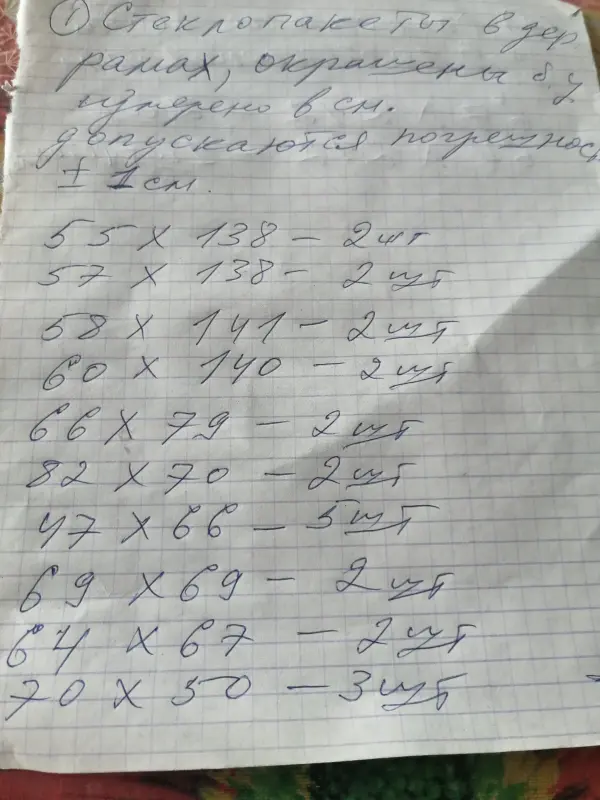 ① Стеклопакеты в дер
рамах, окрашены б.у
измерено в см.
допускаются погрешнос
± 1 см.
55 х 138 – 2 шт
57 х 138 – 2 шт
58 х 141 – 2 шт
60 х 140 – 2 шт
66 х 79 – 2 шт
82 х 70 – 2 шт
47 х 66 – 5 шт
69 х 69 – 2 шт
64 х 67 – 2 шт
70 х 50 – 3 шт